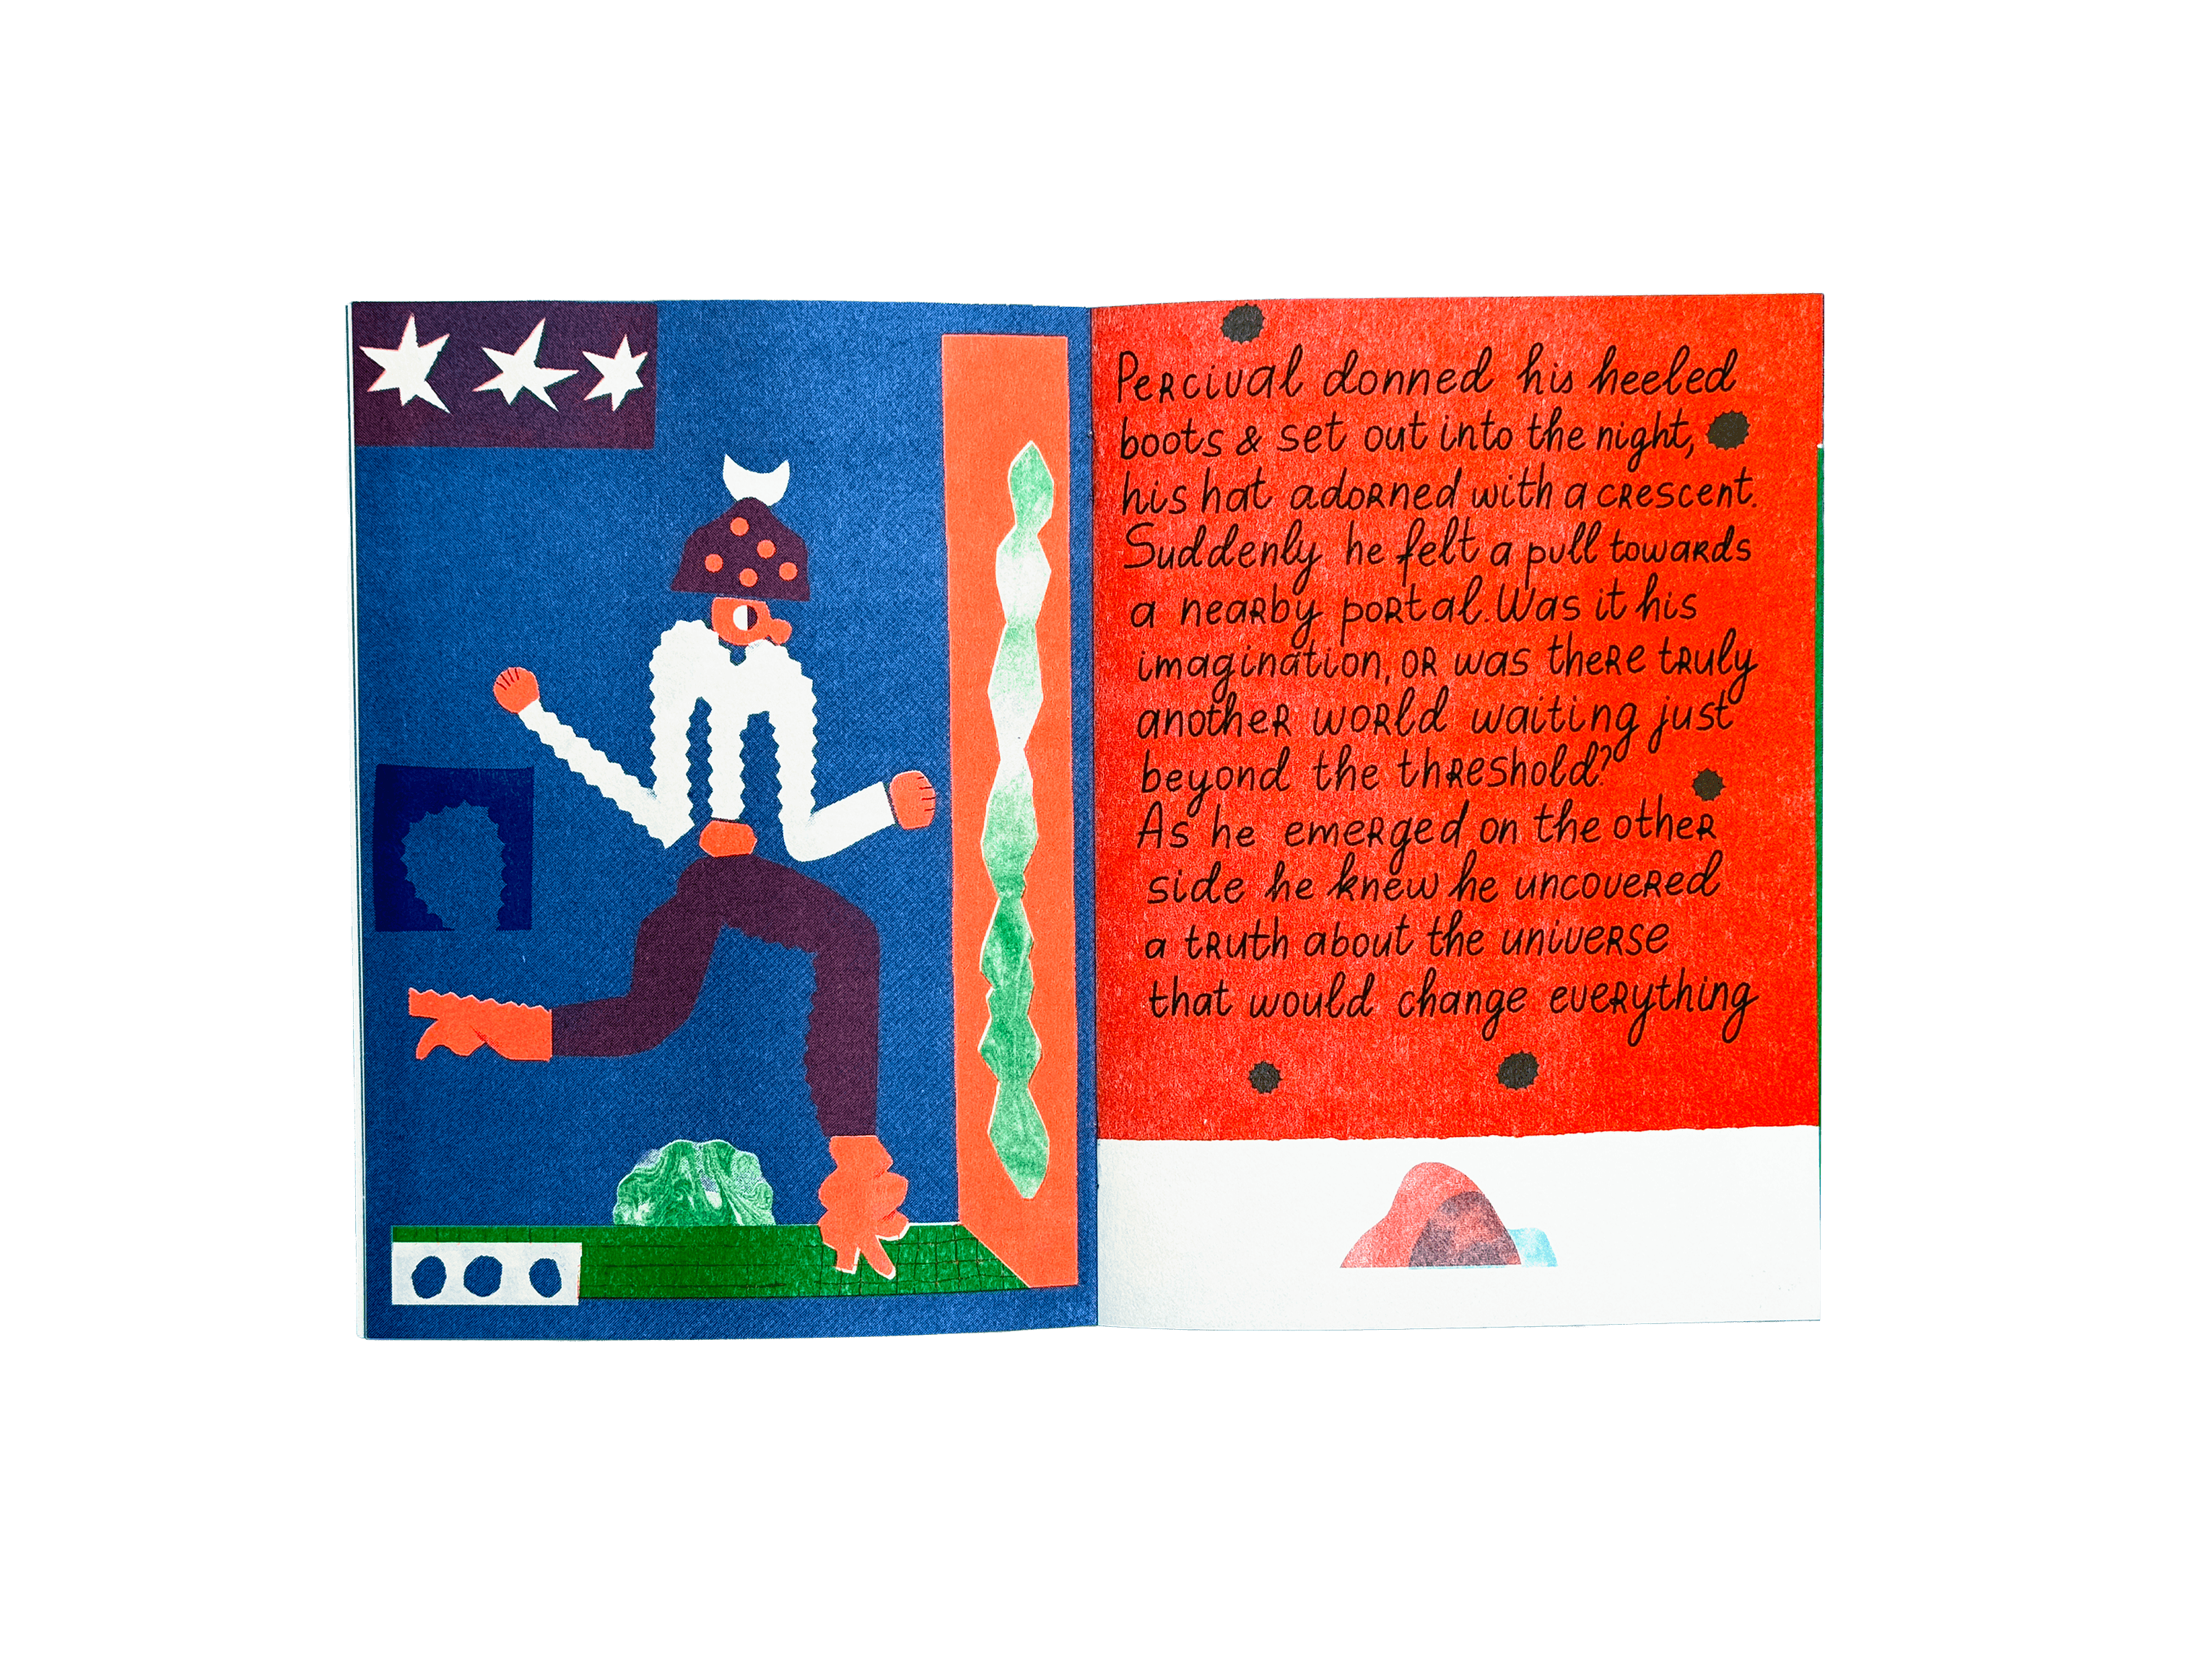 Percival donned his heeled
boots & set out into the night,
his hat adorned with a crescent.
Suddenly he felt a pull towards
a nearby portal. Was it his
imagination, or was there truly
another world waiting just
beyond the threshold?
As he emerged on the other
side he knew he uncovered
a truth about the universe
that would change everything